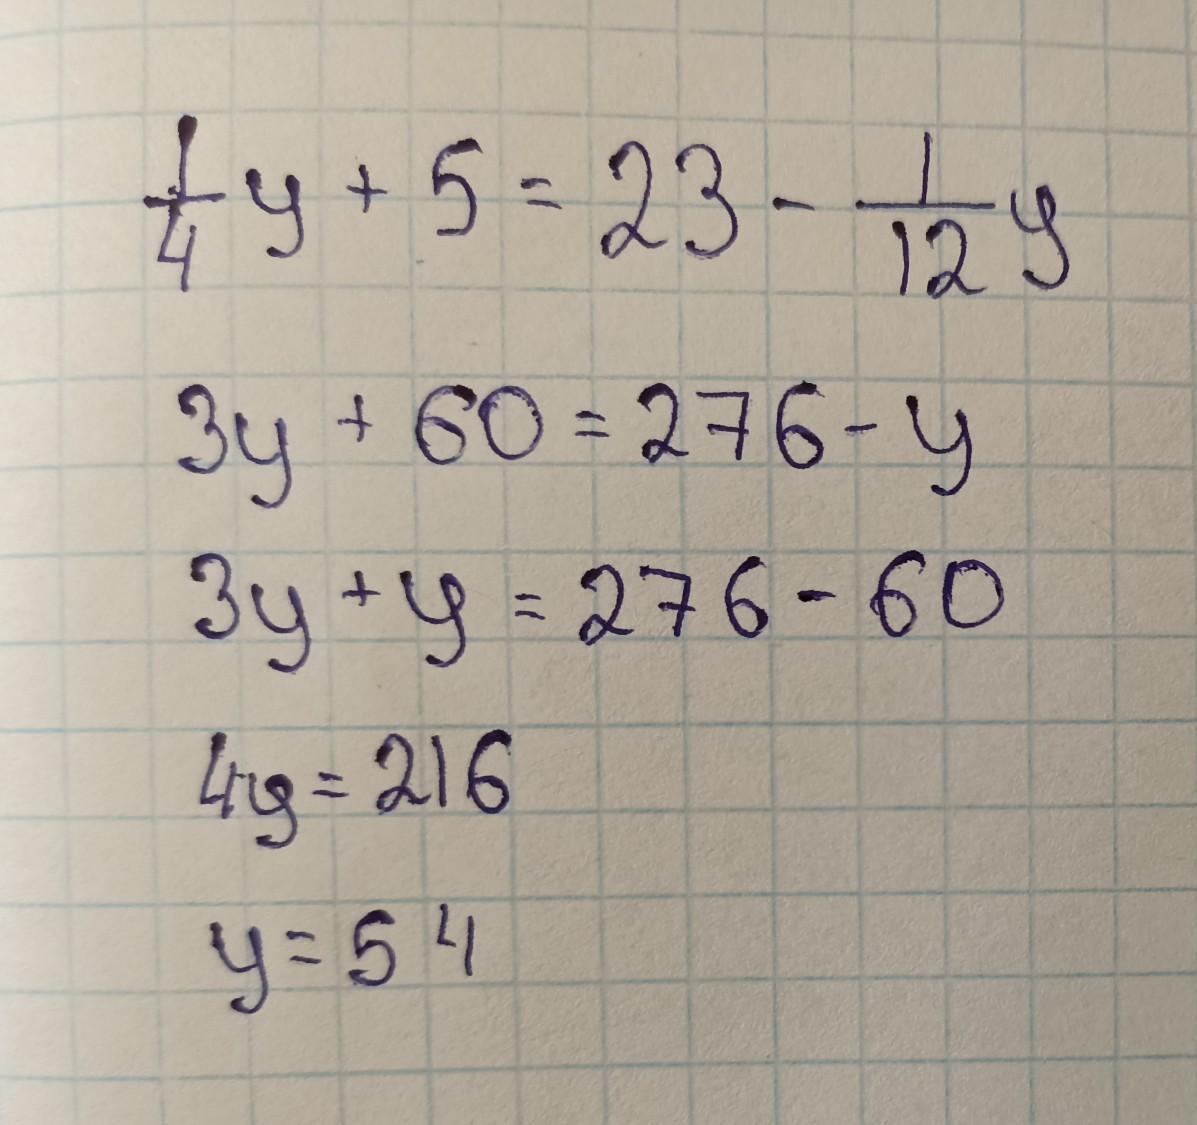 1/4 y + 5 = 23 - 1/12 y
3y + 60 = 276 - y
3y + y = 276 - 60
4y = 216
y = 54